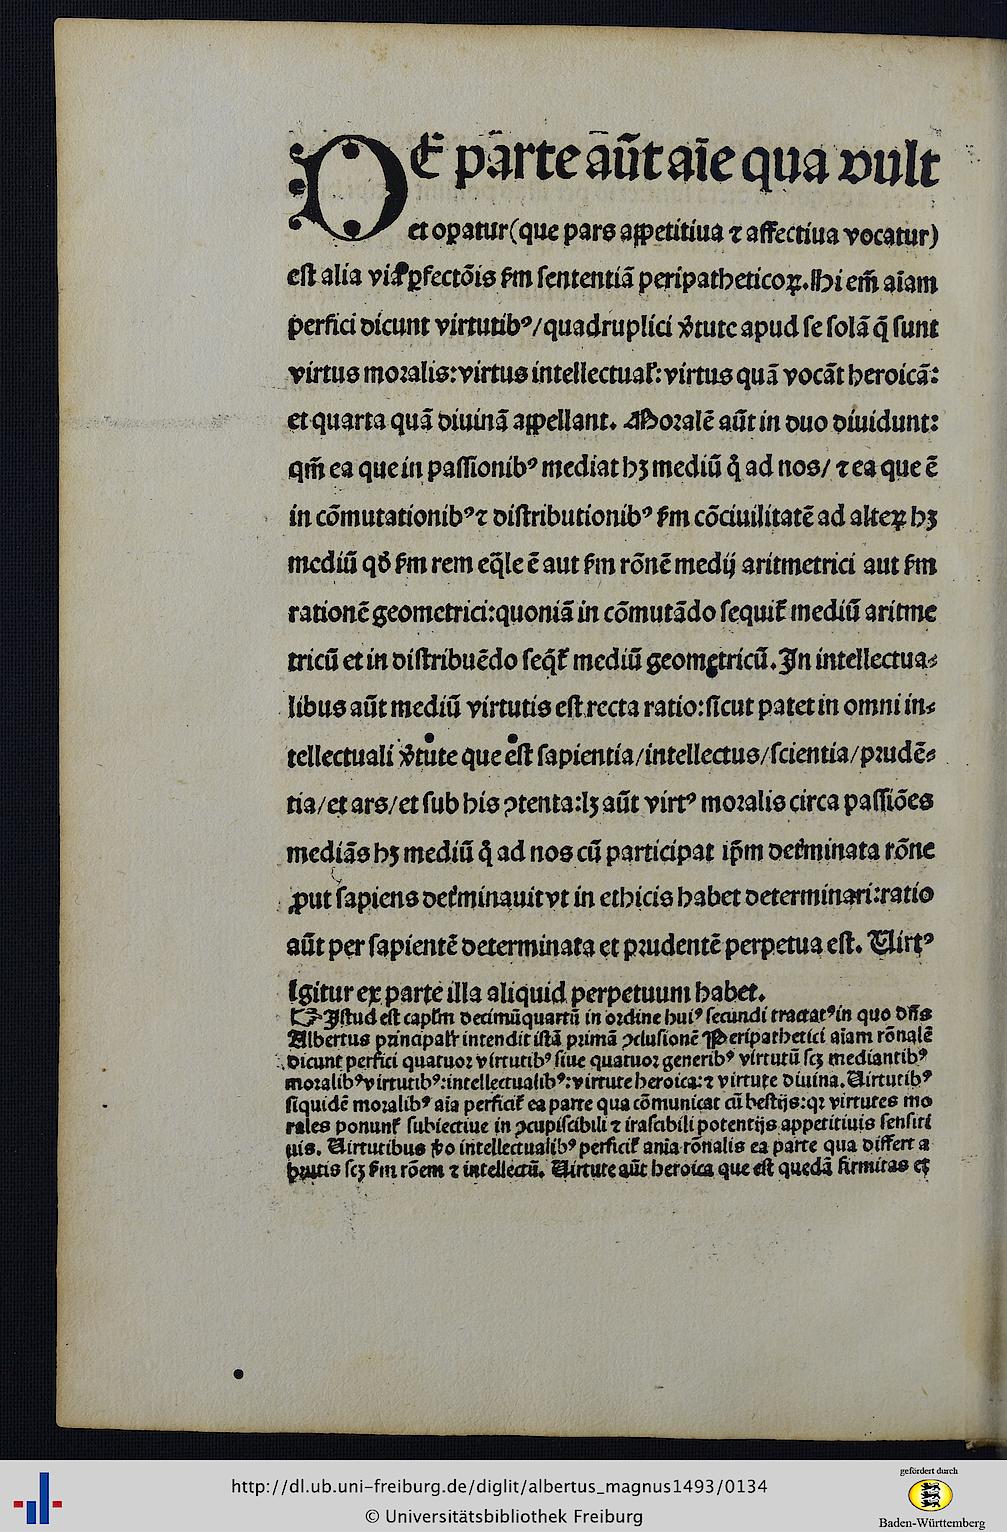 DE parte aūt aīe qua vult
et oꝑatur (que pars aꝑpetitiua ⁊ affectiua vocatur)
est alia via ꝑfectōis ẜm sententiā peripatheticoꝝ. Hi em̄ aīam
perfici dicunt virtutibꝰ/ quadruplici v̓tute apud se solā q̄ sunt
virtus moralis: virtus intellectual̓: virtus quā vocāt heroicā:
et quarta quā diuinā aꝑpellant. Moralē aūt in duo diuidunt:
qm̄ ea que in passionibꝰ mediat hꝫ mediū q̓ ad nos/ ⁊ ea que ē
in cōmutationibꝰ ⁊ distributionibꝰ ẜm cōciuilitatē ad alteꝝ hꝫ
mediū qď ẜm rem eq̄le ē aut ẜm rōnē medij aritmetrici aut ẜm
rationē geometrici: quoniā in cōmutādo sequit̓ mediū aritme
tricū et in distribuēdo seq̄t̓ mediū geometricū. In intellectua⸗
libus aūt mediū virtutis est recta ratio: sicut patet in omni in⸗
tellectuali v̓tute que est sapientia/ intellectus/ scientia/ prudē⸗
tia/ et ars/ et sub his ꝯtenta: lꝫ aūt virtꝰ moralis circa passiōes
mediās hꝫ mediū q̓ ad nos cū participat ip̄m det̓minata rōne
ꝓut sapiens det̓minauit vt in ethicis habet determinari: ratio
aūt per sapientē determinata et prudentē perpetua est. Uirtꝰ
Igitur ex parte illa aliquid perpetuum habet.
☞ Istud est capl̓m decimūquartū in ordine huiꝰ secundi tractatꝰ in quo dn̄s
Albertus principalr̓ intendit istā primā ꝯclusionē Peripathetici aīam rōnalē
dicunt perfici quatuor virtutibꝰ siue quatuor generibꝰ virtutū scꝫ mediantibꝰ
moralibꝰ virtutibꝰ: intellectualibꝰ: virtute heroica: ⁊ virtute diuina. Uirtutibꝰ
siquidē moralibꝰ aīa perficit̓ ea parte qua cōmunicat cū bestijs: qꝛ virtutes mo
rales ponunt̓ subiectiue in ꝯcupiscibili ⁊ irascibili potentijs appetitiuis sensiti
uis. Uirtutibus v̓o intellectualibꝰ perficit̓ anīa rōnalis ea parte qua differt a
brutis scꝫ ẜm rōem ⁊ intellectū. Uirtute aūt heroica que est quedā firmitas et
http://dl.ub.uni-freiburg.de/diglit/albertus_magnus1493/0134
© Universitätsbibliothek Freiburg
gefördert durch
Baden-Württemberg